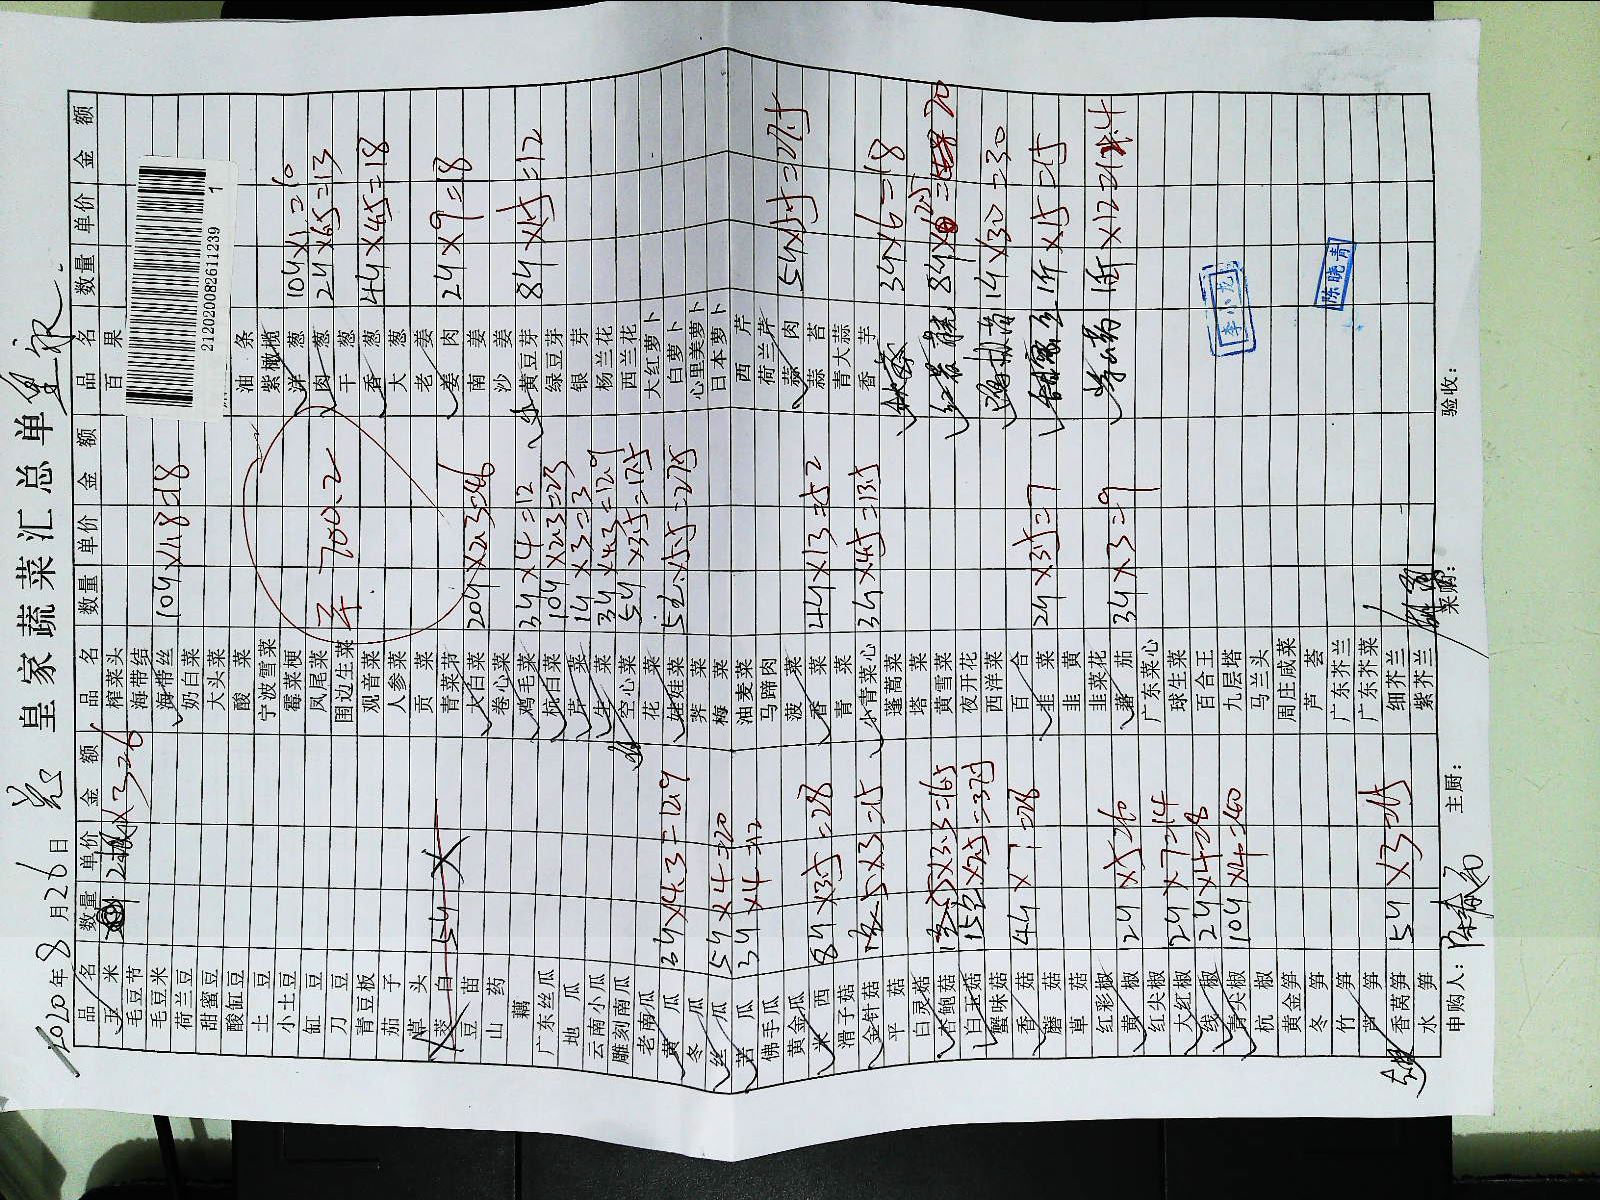 2020年8月26日 皇家蔬菜汇总单
品名 数量 单价 金额 品名 数量 单价 金额 品名 数量 单价 金额
玉米 ×3=6 榨菜头 百果
毛豆节 海带结
毛豆米 海带丝 10斤×1.8=18
荷兰豆 奶白菜
甜蜜豆 大头菜
酸缸豆 酸菜 油条
土豆 宁波雪菜 紫橄榄
小土豆 霉菜梗 洋葱 10斤×1=10
缸豆 凤尾菜 肉葱 2斤×6.5=13
刀豆 围边生菜 干葱
青豆板 观音菜 香葱 4斤×4.5=18
茄子 人参菜 大葱
芋头 贡菜 老姜
茭白 5斤× 青菜节 姜肉 2斤×9=18
豆苗 大白菜 20斤×2.3=46 南姜
山药 卷心菜 沙姜
藕 鸡毛菜 3斤×4=12 黄豆芽 8斤×1.5=12
广东丝瓜 杭白菜 10斤×2.3=23 绿豆芽
地瓜 芹菜 1斤×3=3 银芽
云南小瓜 生菜 3斤×4.3=12.9 杨兰花
雕刻南瓜 空心菜 5斤×3.5=17.5 西兰花
老南瓜 花菜 大红萝卜
黄瓜 3斤×4.3=12.9 娃娃菜 5包×5.5=27.5 白萝卜
冬瓜 荠菜 心里美萝卜
丝瓜 5斤×4=20 梅菜 日本萝卜
苦瓜 3斤×4=12 油麦菜 西芹
佛手瓜 马蹄肉 荷兰芹
黄金瓜 菠菜 蒜肉 5斤×5.5=27.5
米西 8斤×3.5=28 香菜 4斤×13=52 蒜苔
滑子菇 青菜 青大蒜
金针菇 5×3=15 小青菜心 3斤×4.5=13.5 香芋
平菇 蓬蒿菜 3斤×6=18
白灵菇 塔菜
杏鲍菇 5×3.3=16.5 黄雪菜 8斤× 70
白玉菇 15包×2.5=37.5 夜开花
蟹味菇 西洋菜 1斤×30=30
香菇 4斤×7=28 百合
蘑菇 韭菜 2斤×3.5=7 1斤×15=15
草菇 韭黄
红彩椒 韭菜花
黄椒 2斤×5=10 蕃茄 3斤×3=9 1斤×12=12
红尖椒 广东菜心
大红椒 2斤×7=14 球生菜
线椒 2斤×4=8 百合王
青尖椒 10斤×4=40 九层塔
杭椒 马兰头
黄金笋 周庄咸菜
冬笋 芦荟
竹笋 广东芥兰
芦笋 广东芥菜
香莴笋 5斤×3=15 细芥兰
水笋 紫芥兰
申购人： 主厨： 采购： 验收：
700.2
212020082611239 1
李小龙
陈晓青